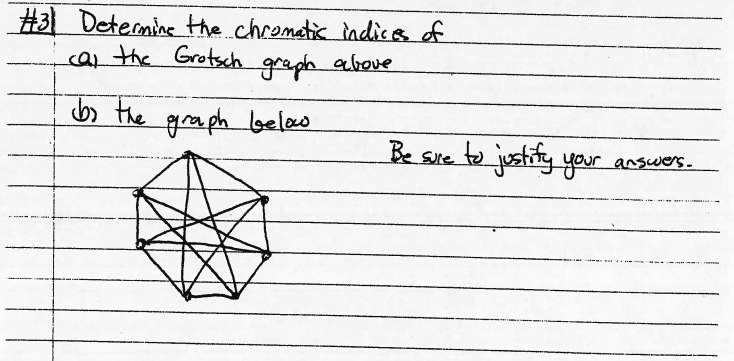 #3| Determine the chromatic indices of
(a) the Grotsch graph above
(b) the graph below
Be sure to justify your answers.